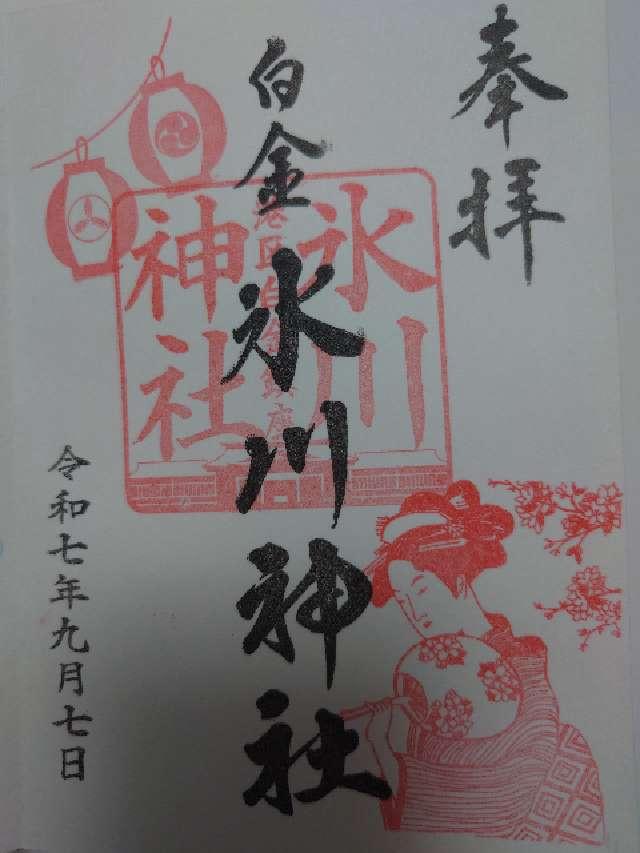 奉拝
白金 氷川神社
氷川
神社
令和七年九月七日